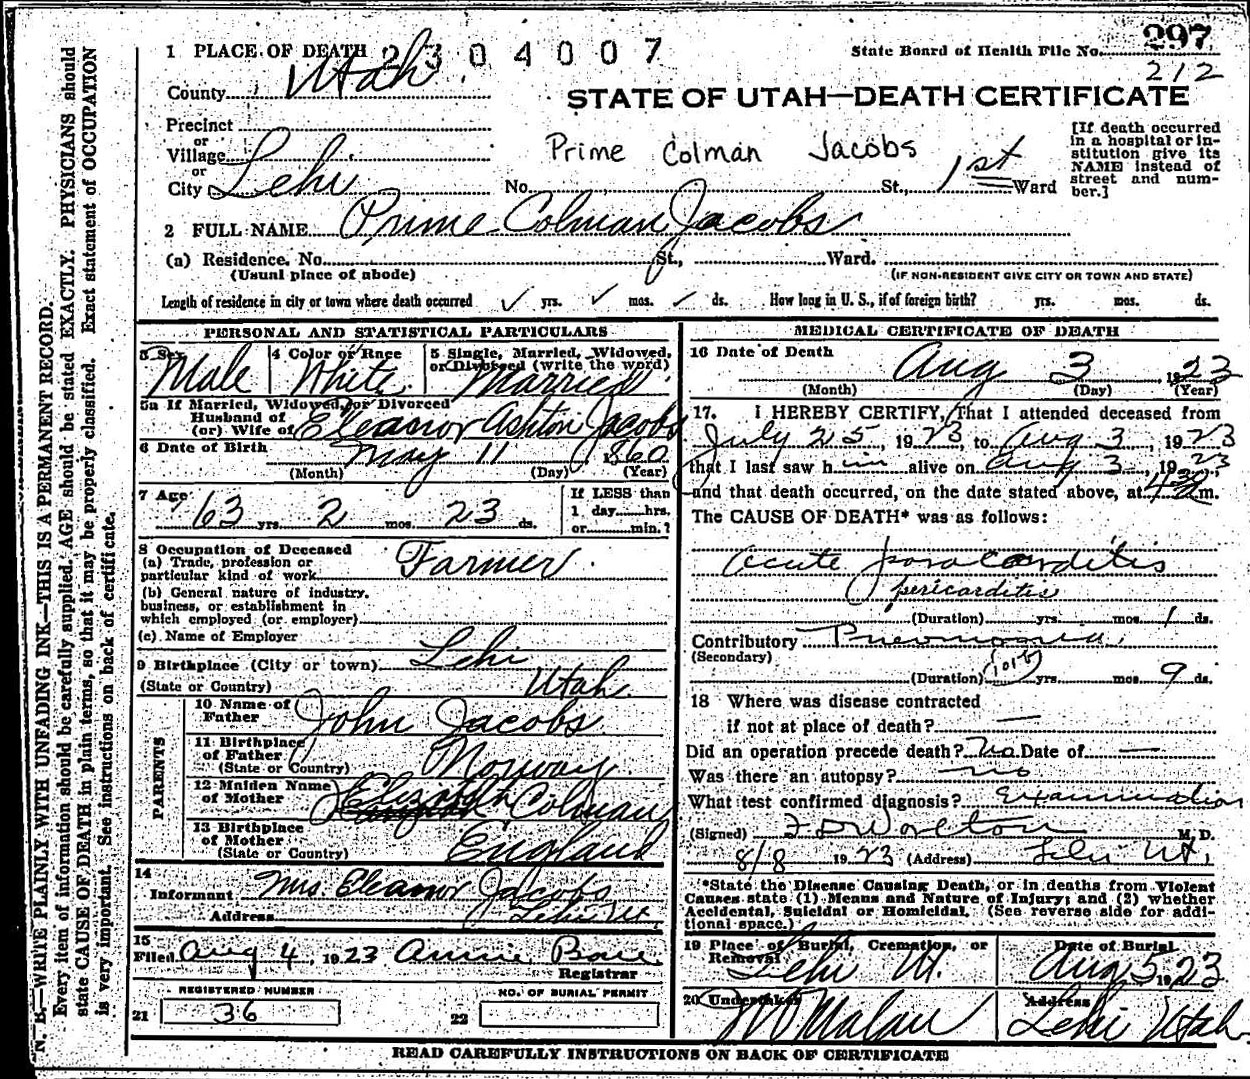 1 PLACE OF DEATH 2304007
State Board of Health File No. 297
212
County Utah
STATE OF UTAH—DEATH CERTIFICATE
Precinct
or
Village
or
City Lehi No. St., 1st Ward
Prime Colman Jacobs
[If death occurred
in a hospital or in-
stitution give its
NAME instead of
street and num-
ber.]
2 FULL NAME Prime Colman Jacobs
(a) Residence. No. St., Ward.
(Usual place of abode) (IF NON-RESIDENT GIVE CITY OR TOWN AND STATE)
Length of residence in city or town where death occurred ✓ yrs. ✓ mos. ✓ ds. How long in U. S., if of foreign birth? yrs. mos. ds.
PERSONAL AND STATISTICAL PARTICULARS
3 Sex Male
4 Color or Race White
5 Single, Married, Widowed,
or Divorced (write the word)
Married
5a If Married, Widowed, or Divorced
Husband of
(or) Wife of Eleanor Ashton Jacobs
6 Date of Birth May 11 1860
(Month) (Day) (Year)
7 Age
63 yrs. 2 mos. 23 ds.
If LESS than
1 day hrs.
or min.?
8 Occupation of Deceased
(a) Trade, profession or
particular kind of work Farmer
(b) General nature of industry,
business, or establishment in
which employed (or employer)
(c) Name of Employer
9 Birthplace (City or town) Lehi
(State or Country) Utah
PARENTS
10 Name of
Father John Jacobs
11 Birthplace
of Father
(State or Country) Norway
12 Maiden Name
of Mother Elizabeth Colman
13 Birthplace
of Mother
(State or Country) England
14
Informant Mrs. Eleanor Jacobs
Address Lehi Ut.
15
Filed Aug 4, 1923 Annie
Registrar
REGISTERED NUMBER
21 36
NO. OF BURIAL PERMIT
22
MEDICAL CERTIFICATE OF DEATH
16 Date of Death
Aug 3 1923
(Month) (Day) (Year)
17. I HEREBY CERTIFY, That I attended deceased from
July 25, 1923 to Aug 3, 1923
that I last saw him alive on Aug 3, 1923
and that death occurred, on the date stated above, at m.
The CAUSE OF DEATH* was as follows:
Acute
pericarditis
(Duration) yrs. mos. 1 ds.
Contributory Pneumonia
(Secondary)
(Duration) yrs. mos. 9 ds.
18 Where was disease contracted
if not at place of death? —
Did an operation precede death? No Date of —
Was there an autopsy? no
What test confirmed diagnosis? Examination
(Signed) F D Worlton M. D.
8/8 1923 (Address) Lehi Ut.
*State the Disease Causing Death, or in deaths from Violent
Causes state (1) Means and Nature of Injury; and (2) whether
Accidental, Suicidal or Homicidal. (See reverse side for addi-
tional space.)
19 Place of Burial, Cremation, or
Removal
Lehi Ut.
Date of Burial
Aug 5 1923
20 Undertaker
Malan
Address
Lehi Utah
READ CAREFULLY INSTRUCTIONS ON BACK OF CERTIFICATE
N. B.—WRITE PLAINLY WITH UNFADING INK—THIS IS A PERMANENT RECORD.
Every item of information should be carefully supplied. AGE should be stated EXACTLY. PHYSICIANS should
state CAUSE OF DEATH in plain terms, so that it may be properly classified. Exact statement of OCCUPATION
is very important. See instructions on back of certificate.